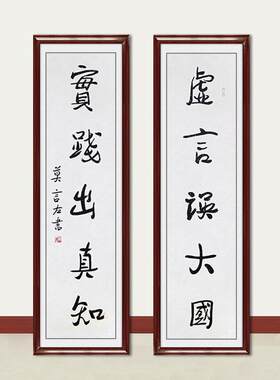 虛言誤大國
實踐出真知
莫言左書